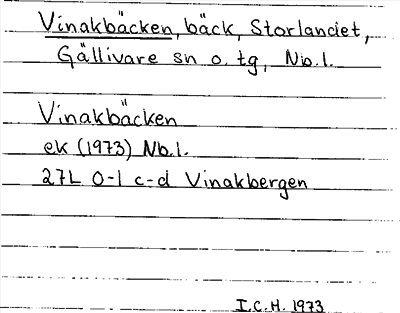 Vinakbäcken, bäck, Storlandet,
Gällivare sn o. tg, Nb.l.
Vinakbäcken
ek (1973) Nb.l.
27L 0-1 c-d Vinakbergen
I.C.H. 1973